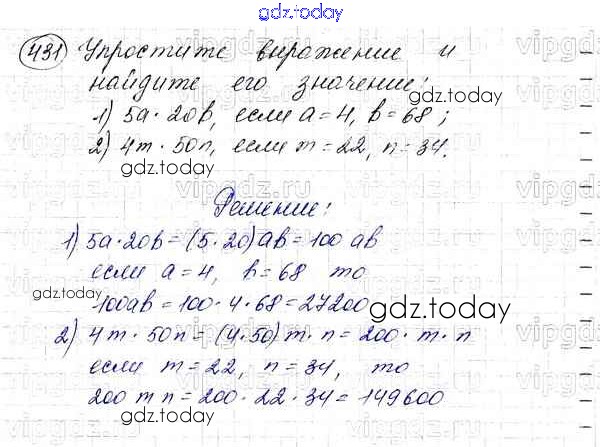 gdz.today
431 Упростите выражение и
найдите его значение:
gdz.today
1) 5a · 20b, если a = 4, b = 68;
2) 4m · 50n, если m = 22, n = 34.
gdz.today
vipgdz.ru
Решение:
1) 5a · 20b = (5 · 20) ab = 100 ab
если a = 4, b = 68 то
gdz.today
100ab = 100 · 4 · 68 = 27200
gdz.today
2) 4m · 50n = (4 · 50) m · n = 200 · m · n
если m = 22, n = 34, то
200 m n = 200 · 22 · 34 = 149600
gdz.today